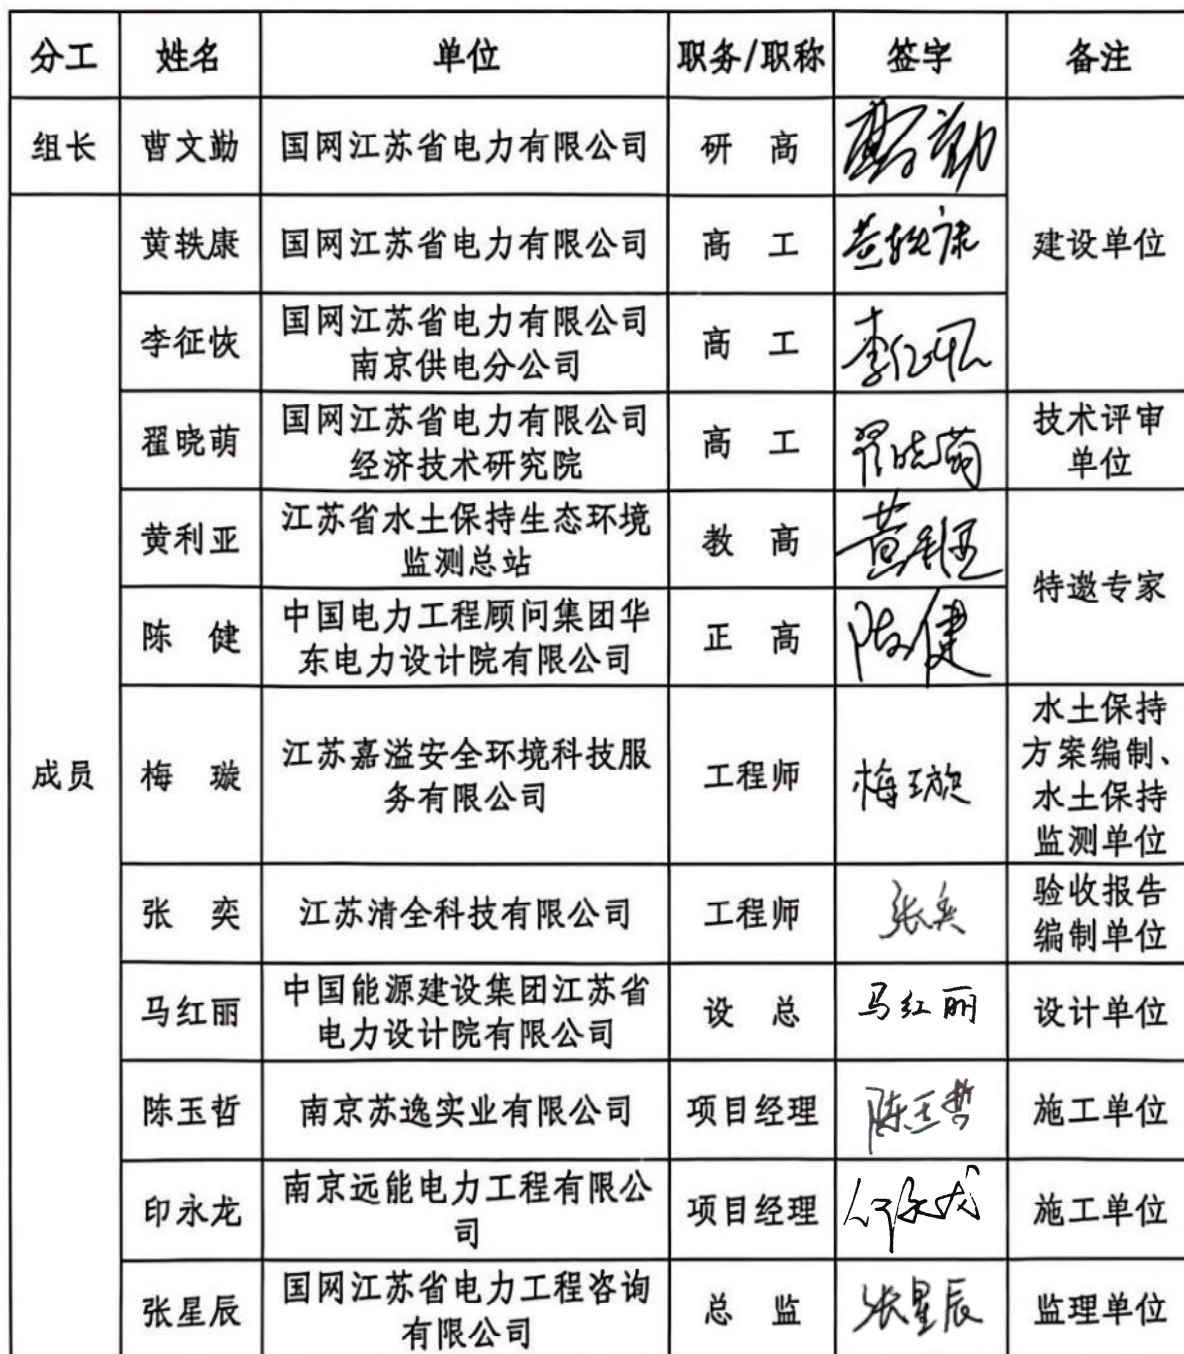 分工 姓名 单位 职务/职称 签字 备注
组长 曹文勤 国网江苏省电力有限公司 研 高 曹文勤
建设单位
成员
黄轶康 国网江苏省电力有限公司 高 工 黄轶康
李征恢 国网江苏省电力有限公司
南京供电分公司 高 工 李征恢
翟晓萌 国网江苏省电力有限公司
经济技术研究院 高 工 翟晓萌 技术评审
单位
黄利亚 江苏省水土保持生态环境
监测总站 教 高 黄利亚
特邀专家
陈 健 中国电力工程顾问集团华
东电力设计院有限公司 正 高 陈健
梅 璇 江苏嘉溢安全环境科技服
务有限公司 工程师 梅璇 水土保持
方案编制、
水土保持
监测单位
张 奕 江苏清全科技有限公司 工程师 张奕 验收报告
编制单位
马红丽 中国能源建设集团江苏省
电力设计院有限公司 设 总 马红丽 设计单位
陈玉哲 南京苏逸实业有限公司 项目经理 陈玉哲 施工单位
印永龙 南京远能电力工程有限公
司 项目经理 印永龙 施工单位
张星辰 国网江苏省电力工程咨询
有限公司 总 监 张星辰 监理单位